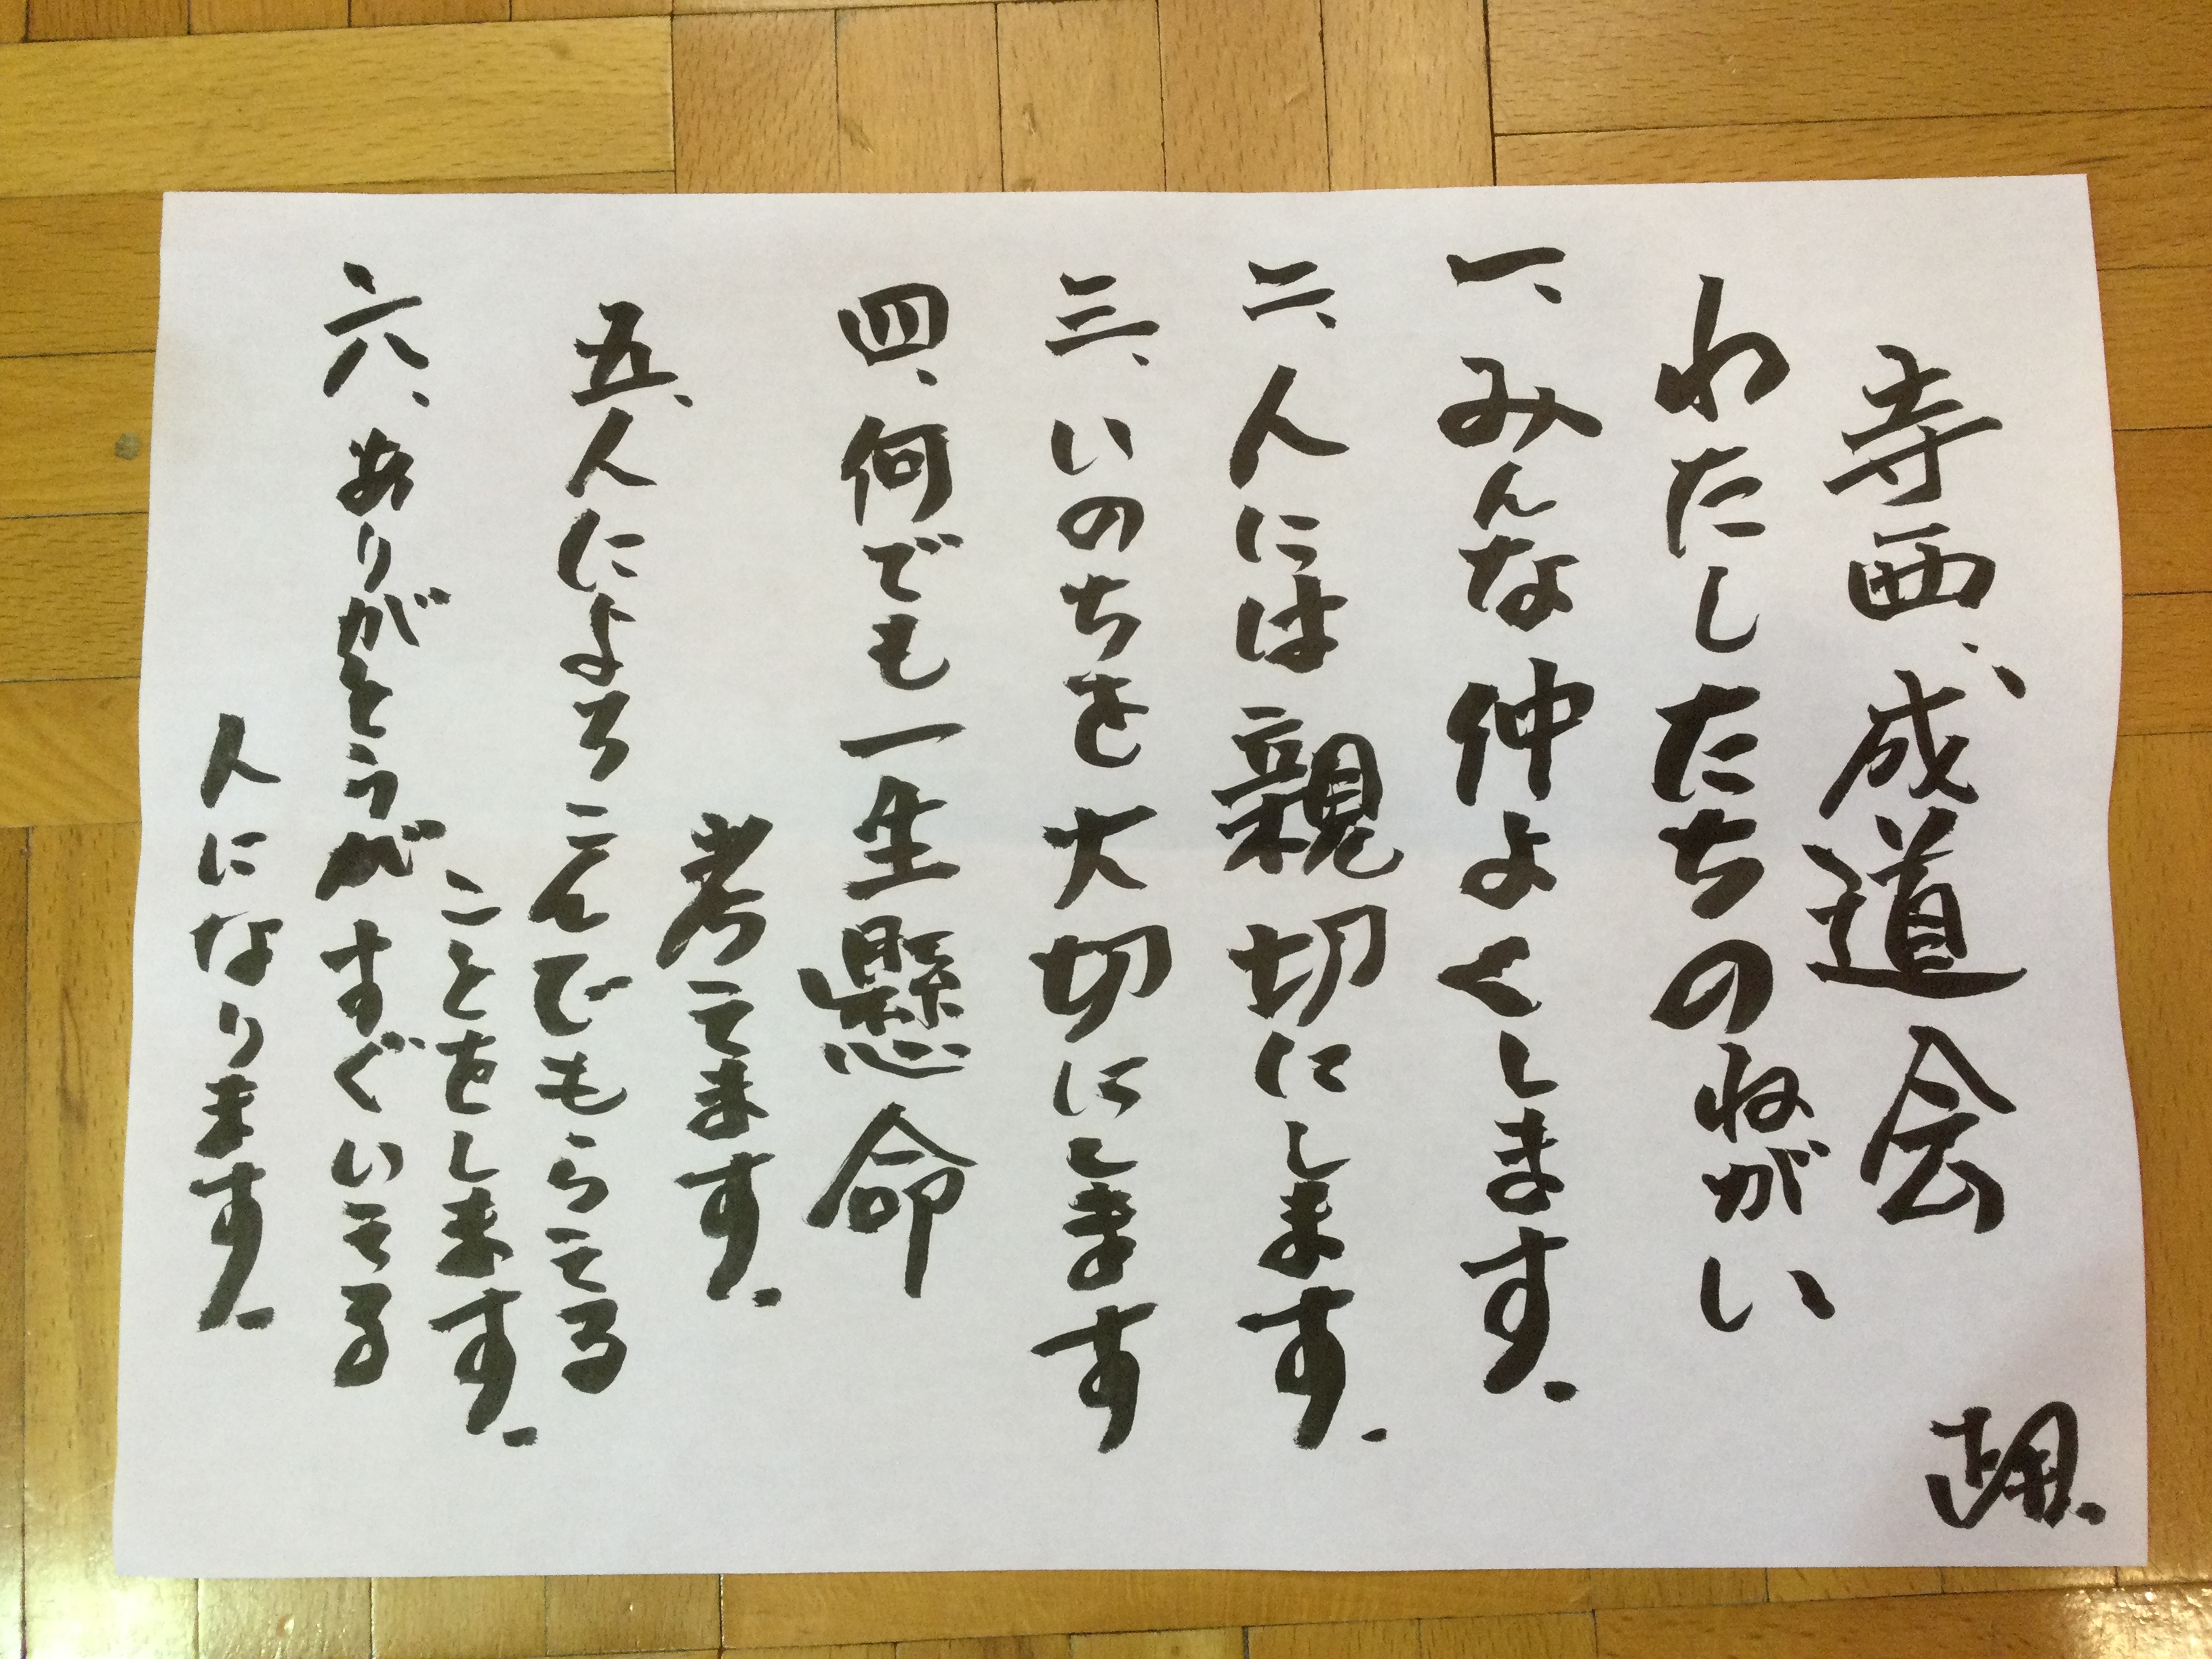 寺西、成道会
わたしたちのねがい
一、みんな仲よくします。
二、人には親切にします。
三、いのちを大切にします
四、何でも一生懸命
考えます。
五、人によろこんでもらえる
ことをします。
六、ありがとうが すぐいえる
人になります。